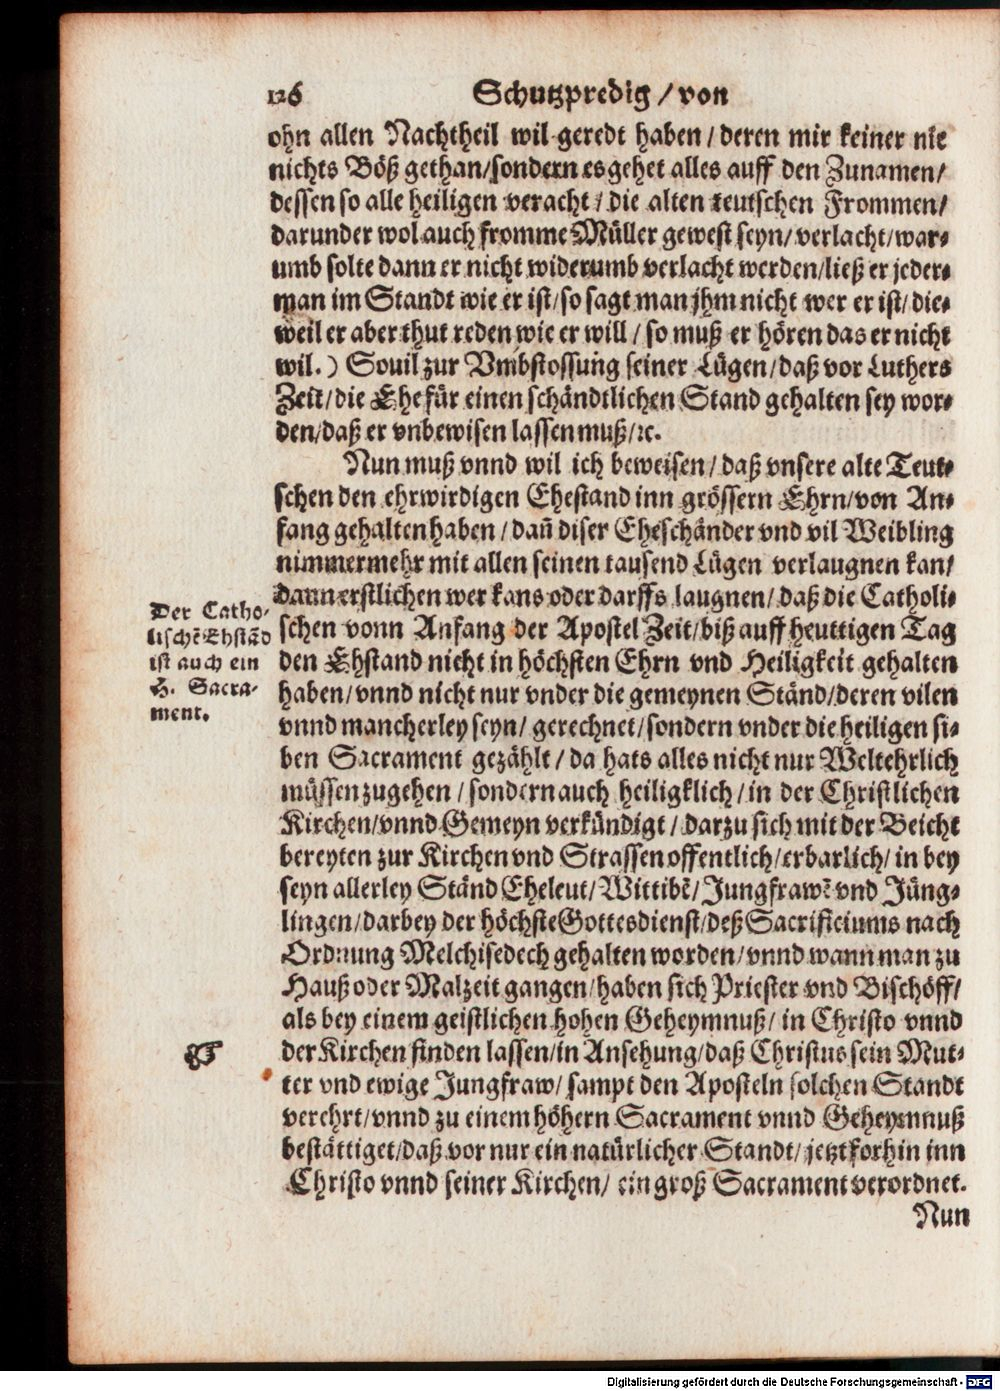 126 Schutzpredig / von
ohn allen Nachtheil wil geredt haben / deren mir keiner nie
nichts Böß gethan / sondern es gehet alles auff den Zunamen /
dessen so alle heiligen veracht / die alten teutschen Frommen /
darunder wol auch fromme Müller gewest seyn / verlacht / war-
umb solte dann er nicht widerumb verlacht werden / ließ er jeder-
man im Standt wie er ist / so sagt man jhm nicht wer er ist / die-
weil er aber thut reden wie er will / so muß er hören das er nicht
wil. ) Souil zur Vmbstossung seiner Lügen / daß vor Luthers
Zeit / die Ehe für einen schändtlichen Stand gehalten sey wor-
den / daß er vnbewisen lassen muß / ꝛc.
Nun muß vnnd wil ich beweisen / daß vnsere alte Teut-
schen den ehrwirdigen Ehestand inn grössern Ehrn / von An-
fang gehalten haben / dañ diser Eheschänder vnd vil Weibling
nimmermehr mit allen seinen tausend Lügen verlaugnen kan /
dann erstlichen wer kans oder darffs laugnen / daß die Catholi-
schen vonn Anfang der Apostel Zeit / biß auff heuttigen Tag
den Ehstand nicht in höchsten Ehrn vnd Heiligkeit gehalten
haben / vnnd nicht nur vnder die gemeynen Ständ / deren vilen
vnnd mancherley seyn / gerechnet / sondern vnder die heiligen si-
ben Sacrament gezählt / da hats alles nicht nur Weltehrlich
müssen zugehen / sondern auch heiligklich / in der Christlichen
Kirchen / vnnd Gemeyn verkündigt / darzu sich mit der Beicht
bereyten zur Kirchen vnd Strassen offentlich / erbarlich / in bey
seyn allerley Ständ Eheleut / Wittibẽ / Jungfrawẽ vnd Jüng-
lingen / darbey der höchste Gottesdienst / deß Sacrificiums nach
Ordnung Melchisedech gehalten worden / vnnd wann man zu
Hauß oder Malzeit gangen / haben sich Priester vnd Bischöff /
als bey einem geistlichen hohen Geheymnuß / in Christo vnnd
der Kirchen finden lassen / in Ansehung / daß Christus sein Mut-
ter vnd ewige Jungfraw / sampt den Aposteln solchen Standt
verehrt / vnnd zu einem höhern Sacrament vnnd Geheymnuß
bestättiget / daß vor nur ein natürlicher Standt / jetzt forhin inn
Christo vnnd seiner Kirchen / ein groß Sacrament verordnet.
Nun
Der Catho-
lischẽ Ehstãd
ist auch ein
H. Sacra-
ment.
☞
Digitalisierung gefördert durch die Deutsche Forschungsgemeinschaft - DFG